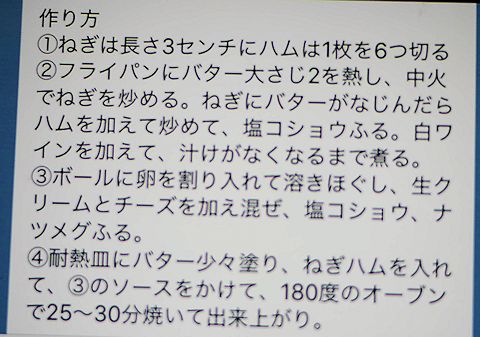 作り方
①ねぎは長さ3センチにハムは1枚を6つ切る
②フライパンにバター大さじ2を熱し、中火
でねぎを炒める。ねぎにバターがなじんだら
ハムを加えて炒めて、塩コショウふる。白ワ
インを加えて、汁けがなくなるまで煮る。
③ボールに卵を割り入れて溶きほぐし、生ク
リームとチーズを加え混ぜ、塩コショウ、ナ
ツメグふる。
④耐熱皿にバター少々塗り、ねぎハムを入れ
て、③のソースをかけて、180度のオーブン
で25〜30分焼いて出来上がり。